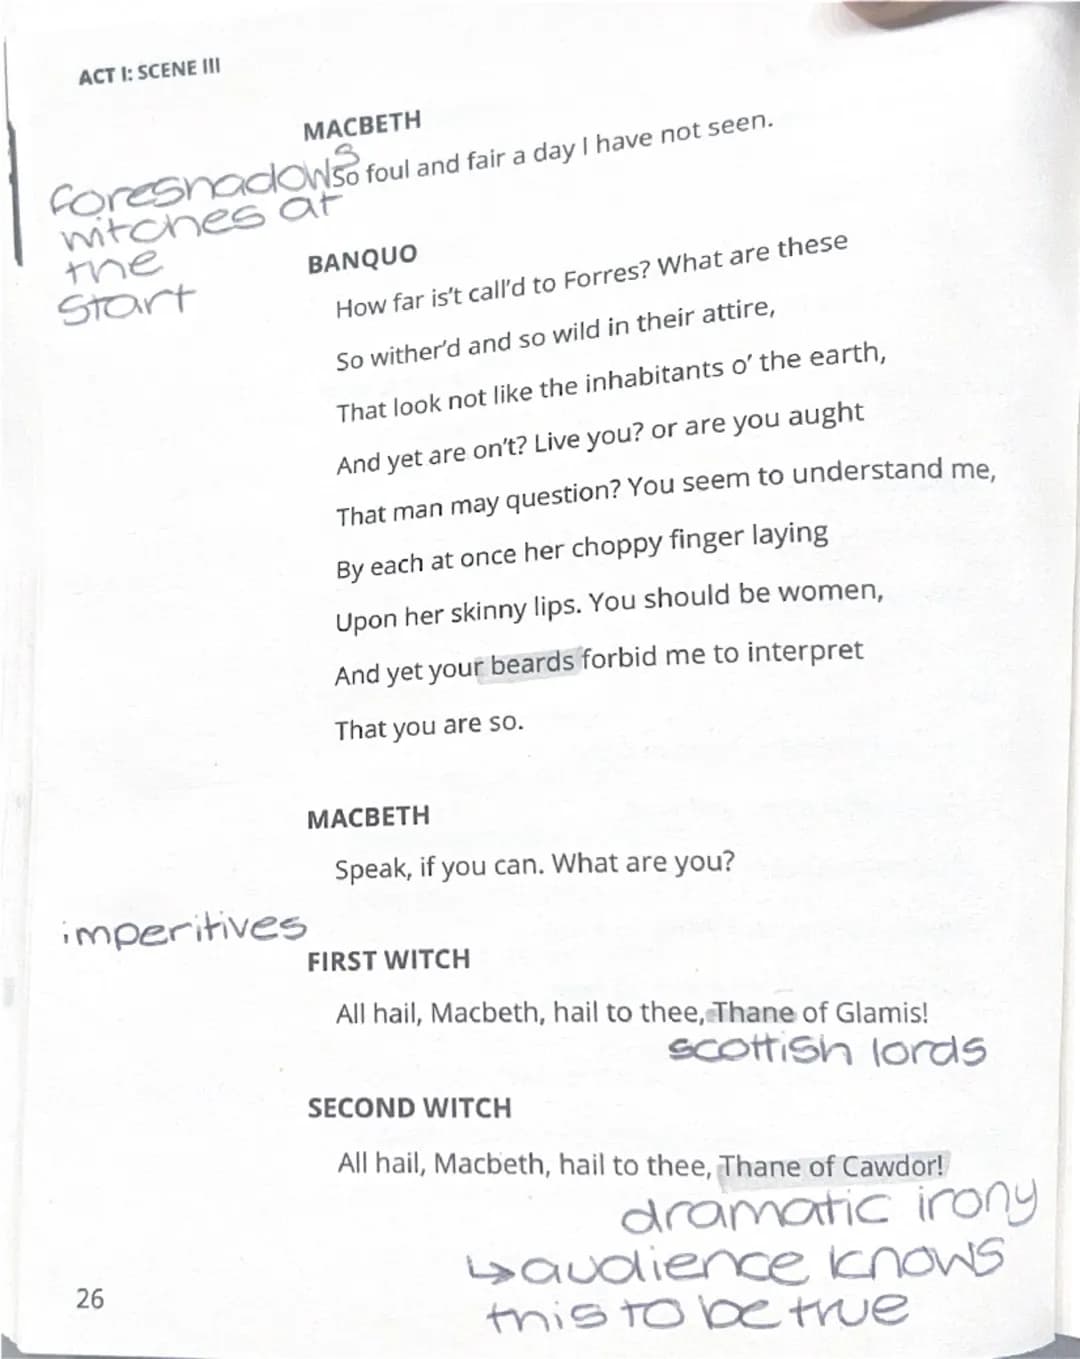 ACT I: SCENE III
MACBETH
So foul and fair a day I have not seen.
foreshadows
witches at
the
start
BANQUO
How far is't call'd to Forres? What are these
So wither'd and so wild in their attire,
That look not like the inhabitants o' the earth,
And yet are on't? Live you? or are you aught
That man may question? You seem to understand me,
By each at once her choppy finger laying
Upon her skinny lips. You should be women,
And yet your beards forbid me to interpret
That you are so.
MACBETH
Speak, if you can. What are you?
imperitives
FIRST WITCH
All hail, Macbeth, hail to thee, Thane of Glamis!
scottish lords
SECOND WITCH
All hail, Macbeth, hail to thee, Thane of Cawdor!
dramatic irony
↳ audience knows
this to be true
26